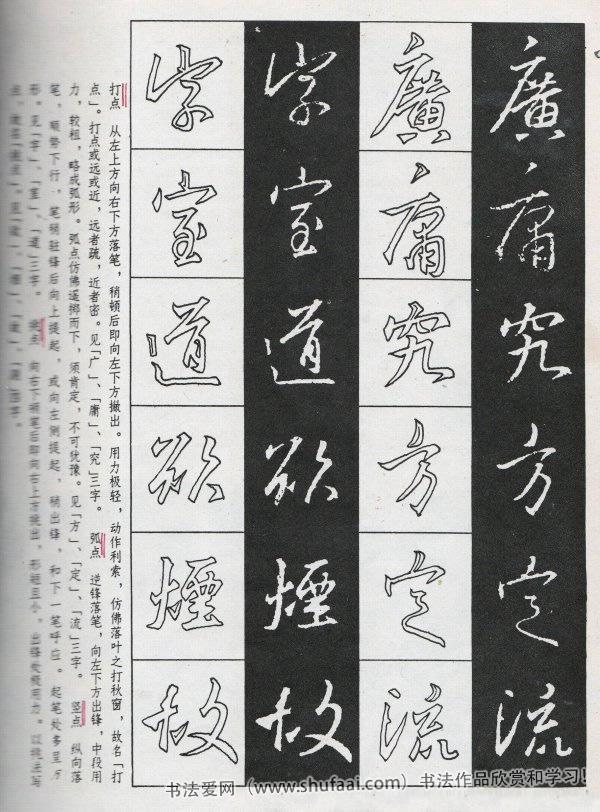 廣庸究方定流
廣庸究方定流
字室道欲煙故
字室道欲煙故
打点　从左上方向右下方落笔，稍顿后即向左下方撇出。用力极轻，动作利索，仿佛落叶之打秋窗，故名「打
点」。打点或远或近，远者疏，近者密。见「广」、「庸」、「究」三字。　弧点　逆锋落笔，向左下方出锋，中段用
力，较粗，略成弧形。弧点仿佛遥掷而下，须肯定，不可犹豫。见「方」、「定」、「流」三字。　竖点　纵向落
笔，顺势下行，笔稍驻锋后向上提起，或向左侧提起，稍出锋，和下一笔呼应。起笔处多呈方
形。见「字」、「室」、「道」三字。　挑点　向右下稍笔后即向右上方挑出，形短且小，出锋
书法爱网（www.shufaai.com）书法作品欣赏和学习！